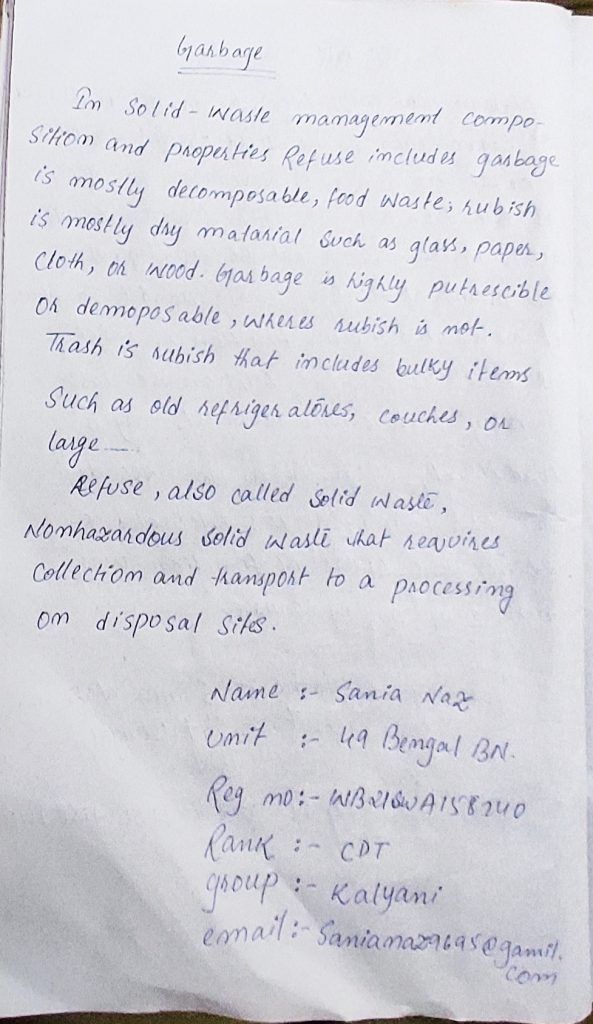 Garbage
In Solid-waste management compo-
sition and properties Refuse includes garbage
is mostly decomposable, food waste; rubish
is mostly dry matarial Such as glass, paper,
Cloth, or wood. Garbage is highly putrescible
or demoposable, wheres rubish is not.
Trash is rubish that includes bulky items
Such as old refrigeratores, couches, or
large
Refuse, also called Solid waste,
Nonhazardous Solid waste that reqvires
Collection and transport to a processing
on disposal sites.
Name :- Sania Naz
Unit :- 49 Bengal BN.
Reg no:- WB21SWA158240
Rank :- CDT
group :- Kalyani
email:- Sanianaz9695@gamil.
com